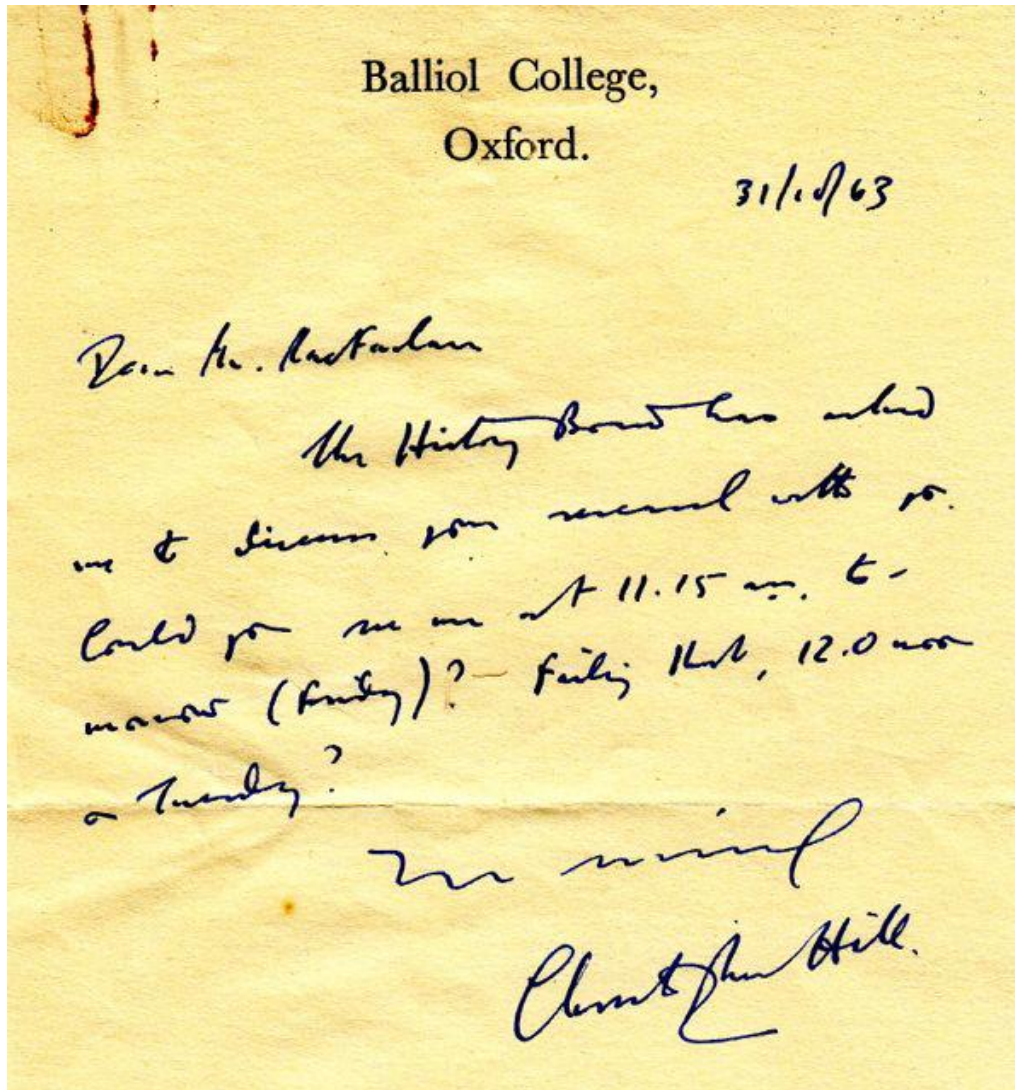 Balliol College,
Oxford.
31/10/63
Dear Mr. Macfarlane
The History Board has asked
me to discuss your with you.
Could you see me at 11.15 am. to-
morrow (Friday)? - Failing that, 12.0 noon
on Tuesday?
Yours sincerely
Christopher Hill.